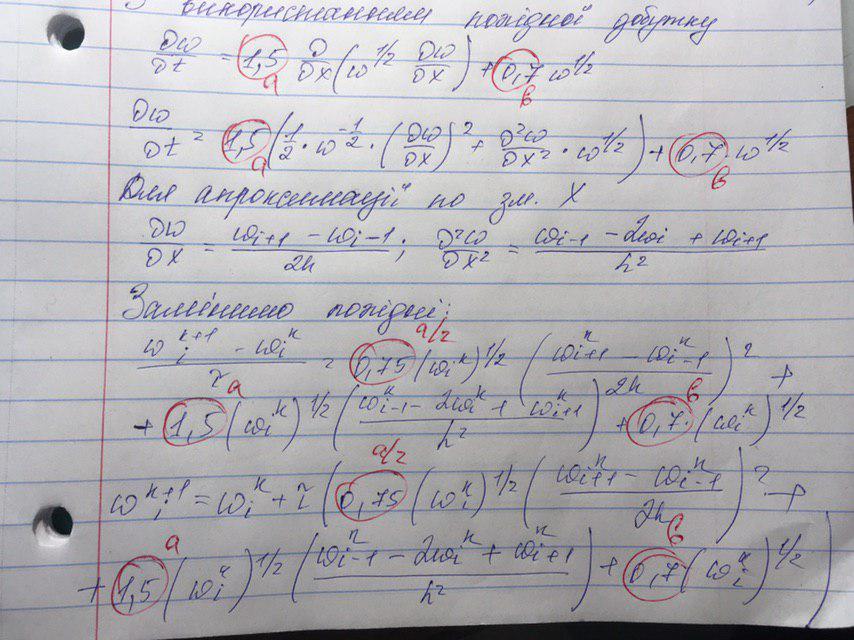 З використанням похідної добутку
∂ω/∂t = 1,5 ∂/∂x (ω^1/2 ∂ω/∂x) + 0,7 ω^1/2
a в
∂ω/∂t = 1,5 (1/2 · ω^-1/2 · (∂ω/∂x)^2 + ∂²ω/∂x² · ω^1/2) + 0,7 · ω^1/2
a в
Для апроксимації по зм. X
∂ω/∂x = (ω_i+1 - ω_i-1)/2h ; ∂²ω/∂x² = (ω_i-1 - 2ω_i + ω_i+1)/h²
Замінимо похідні:
a/2
(ω_i^k+1 - ω_i^k)/τ = 0,75 (ω_i^k)^1/2 ((ω_i+1^k - ω_i-1^k)/2h)^2 +
a в
+ 1,5 (ω_i^k)^1/2 ((ω_i-1^k - 2ω_i^k + ω_i+1^k)/h²) + 0,7 · (ω_i^k)^1/2
a/2
ω_i^k+1 = ω_i^k + τ (0,75 (ω_i^k)^1/2 ((ω_i+1^k - ω_i-1^k)/2h)^2 +
a в
+ 1,5 (ω_i^k)^1/2 ((ω_i-1^k - 2ω_i^k + ω_i+1^k)/h²) + 0,7 (ω_i^k)^1/2)